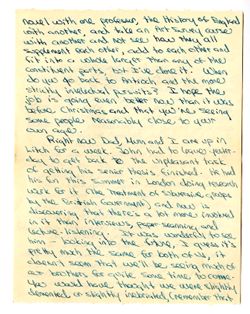 novel with one professor, the History of England
with another, and take an Art Survey course
with another and not see how they all
supplement each other, add to each other and
fit into a whole larger than any of the
constituent parts, but I've done it. When
do you go back to Antioch, and the more
strictly intellectual pursuits? I hope the
job is going even better now than it was
before Christmas and that you're seeing
some people reasonably close to your
own age.
Right now Dad, Mum and I are up in
for a week. John had to leave yester-
day to get back to the unpleasant task
of getting his senior thesis finished. He had
his fun this summer in London doing research
work for it (the treatment of
by the British Government) and now is
discovering that there's a lot more involved
in it than interviews, paper scanning and
lecture-listening. It was wonderful to see
him - looking into the future, I guess it's
pretty much the same for both of us, it
doesn't seem that we'll be seeing much of
our brothers for quite some time to come.
You would have thought we were slightly
demented, or slightly inebriated (remember that